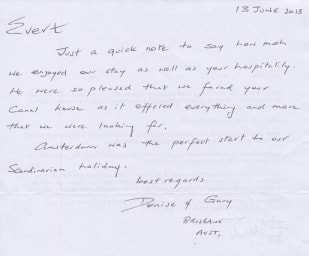 13 JUNE 2013
Evert
Just a quick note to say how much
we enjoyed our stay as well as your hospitality.
We were so pleased that we found your
Canal house as it offered everything and more
that we were looking for.
Amsterdam was the perfect start to our
Scandinavian holiday.
best regards
Denise & Gary
BRISBANE
AUST.